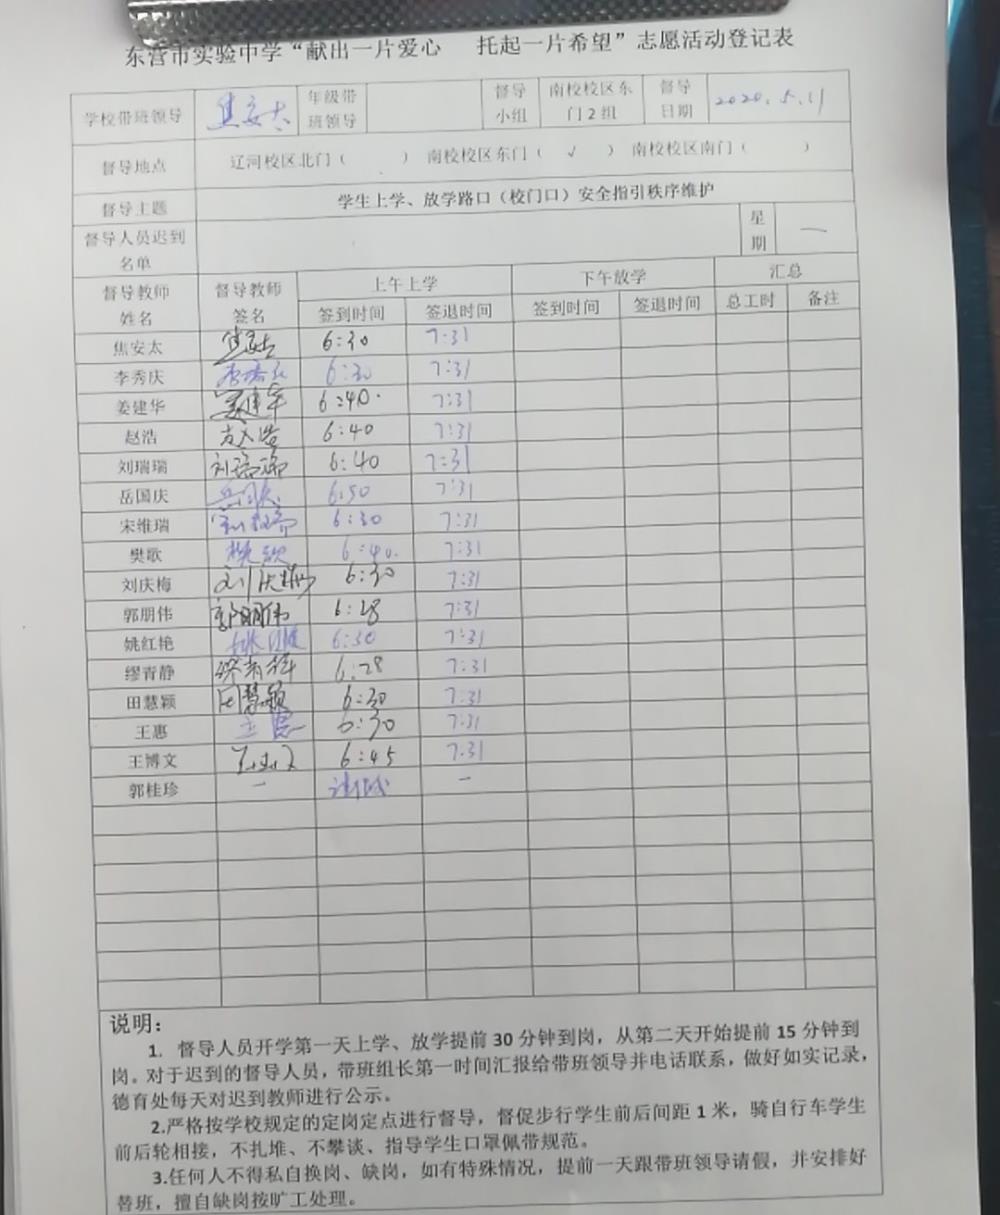 东营市实验中学“献出一片爱心 托起一片希望”志愿活动登记表
学校带班领导 焦安太 年级带班领导 督导小组 南校校区东门2组 督导日期 2020.5.11
督导地点 辽河校区北门（ ） 南校校区东门（ √ ） 南校校区南门（ ）
督导主题 学生上学、放学路口（校门口）安全指引秩序维护
督导人员迟到名单 星期 一
督导教师姓名 督导教师签名 上午上学 下午放学 汇总
签到时间 签退时间 签到时间 签退时间 总工时 备注
焦安太 焦安太 6:30 7:31
李秀庆 李秀庆 6:30 7:31
姜建华 姜建华 6:40. 7:31
赵浩 赵浩 6:40 7:31
刘瑞瑞 刘瑞瑞 6:40 7:31
岳国庆 岳国庆 6:50 7:31
宋维瑞 宋维瑞 6:30 7:31
樊歌 樊歌 6:40. 7:31
刘庆梅 刘庆梅 6:30 7:31
郭朋伟 郭朋伟 6:28 7:31
姚红艳 姚红艳 6:30 7:31
缪青静 缪青静 6:28 7:31
田慧颖 田慧颖 6:30 7:31
王惠 王惠 6:30 7:31
王博文 王博文 6:45 7:31
郭桂珍 一 一
说明：
1. 督导人员开学第一天上学、放学提前30分钟到岗，从第二天开始提前15分钟到
岗。对于迟到的督导人员，带班组长第一时间汇报给带班领导并电话联系，做好如实记录，
德育处每天对迟到教师进行公示。
2.严格按学校规定的定岗定点进行督导，督促步行学生前后间距1米，骑自行车学生
前后轮相接，不扎堆、不攀谈、指导学生口罩佩带规范。
3.任何人不得私自换岗、缺岗，如有特殊情况，提前一天跟带班领导请假，并安排好
替班，擅自缺岗按旷工处理。